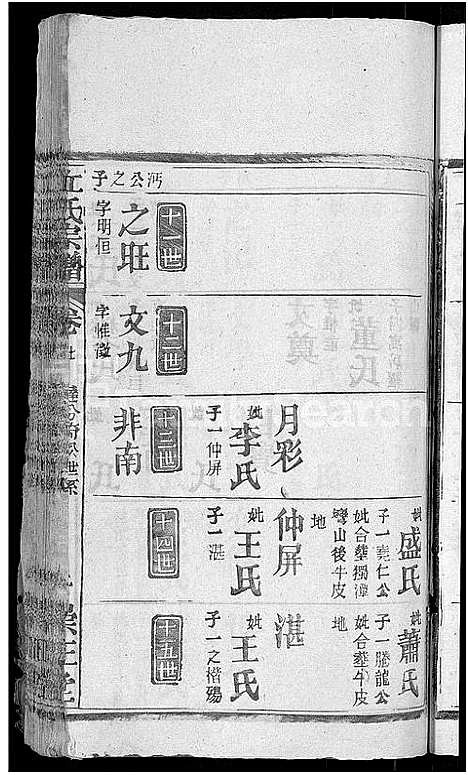 丘氏宗譜
卷
沔公之子
十一世
之旺
字明恒
十二世
文九
字惟徵
十三世
非南
月彩
妣李氏
子一仲屏
十四世
仲屏
妣王氏
子一湛
妣盛氏
子一堯仁公
妣合塟獨潭
彎山後牛皮
地
十五世
湛
妣王氏
子一之楷殤
妣蕭氏
子一騰龍公
妣合塟牛皮
地